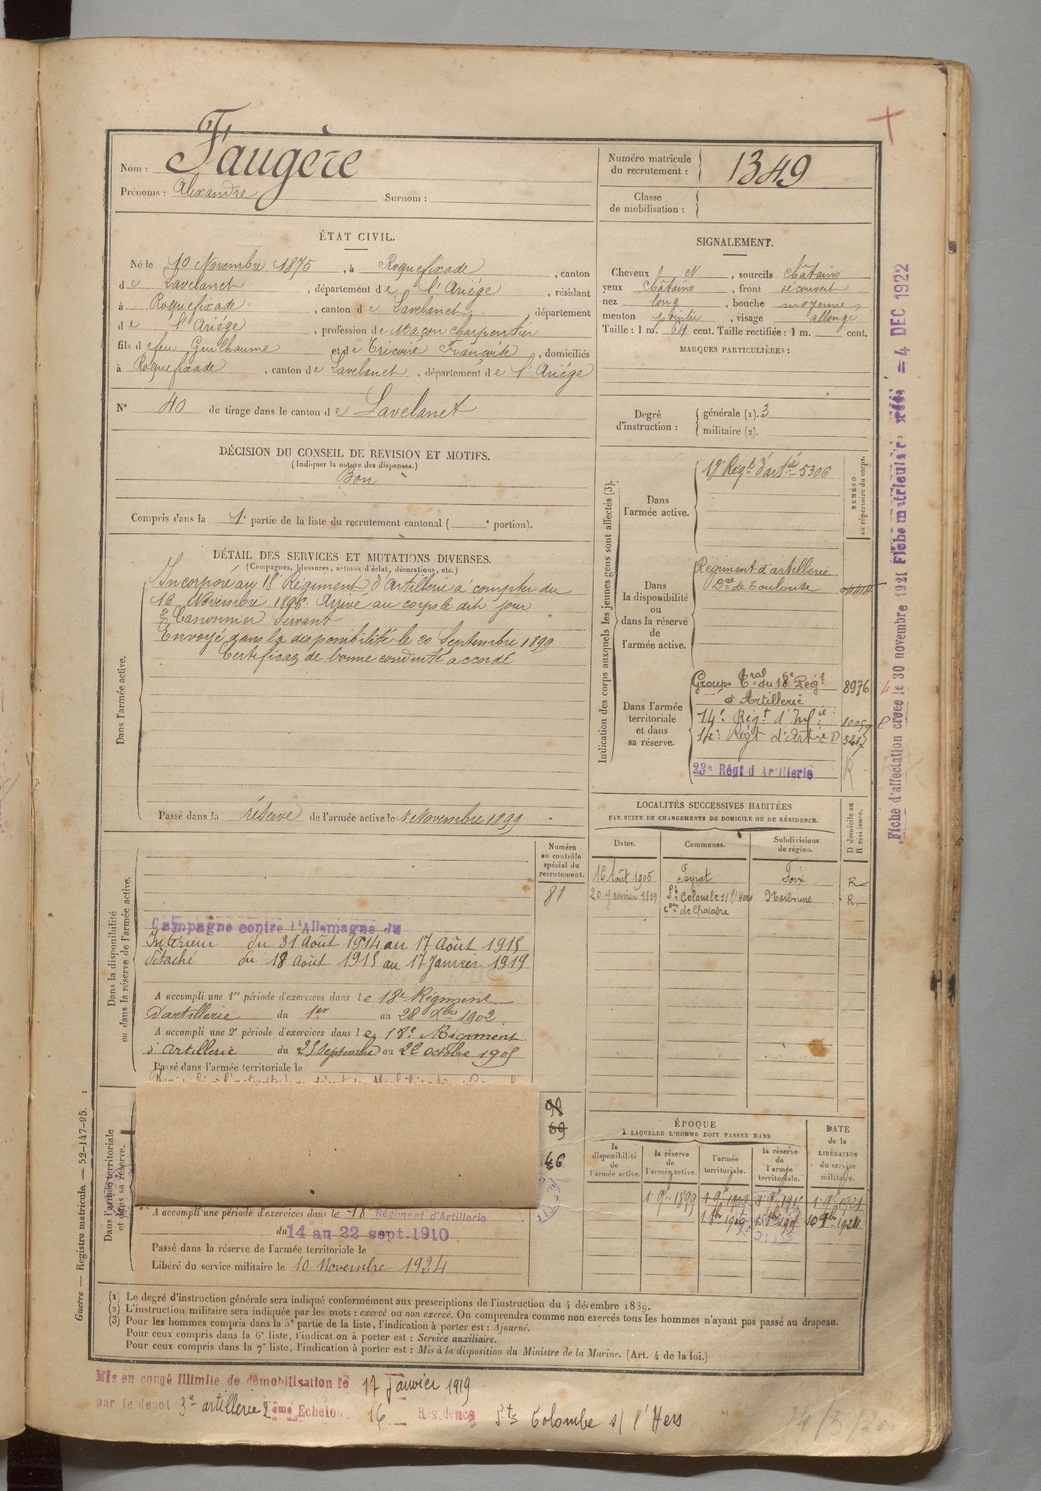 Nom : Faugère
Prénoms : Alexandre Surnom :
Numéro matricule du recrutement : 1349
Classe de mobilisation :
ÉTAT CIVIL.
Né le 10 Novembre 1875, à Roquefixade, canton
de Lavelanet, département de l'Ariège, résidant
à Roquefixade, canton de Lavelanet, département
de l'Ariège, profession de Maçon charpentier
fils de feu Guilhaume et de Tricoire Françoise, domiciliés
à Roquefixade, canton de Lavelanet, département de l'Ariège
N° 40 de tirage dans le canton de Lavelanet
SIGNALEMENT.
Cheveux N, sourcils châtains
yeux châtains, front découvert
nez long, bouche moyenne
menton pointu, visage allongé
Taille : 1 m. 64 cent. Taille rectifiée : 1 m. cent.
MARQUES PARTICULIÈRES :
Degré d'instruction : générale (1). 3
militaire (2).
DÉCISION DU CONSEIL DE REVISION ET MOTIFS.
(Indiquer la nature des dispenses.)
Bon
Compris dans la 1e partie de la liste du recrutement cantonal ( e portion).
DÉTAIL DES SERVICES ET MUTATIONS DIVERSES.
(Campagnes, blessures, actions d'éclat, décorations, etc.)
Dans l'armée active.
Incorporé au 18e Régiment d'artillerie à compter du
16 Novembre 1896. Arrivé au corps le dit jour
2e Canonnier Servant
Envoyé dans la disponibilité le 20 Septembre 1899
Certificat de bonne conduite accordé
Passé dans la réserve de l'armée active le 1 Novembre 1899
Indication des corps auxquels les jeunes gens sont affectés (3).
NUMÉRO au répertoire du corps.
Dans l'armée active.
Régt d'artie 5306
Dans la disponibilité ou dans la réserve de l'armée active.
Régiment d'artillerie
de Toulouse
Dans l'armée territoriale et dans sa réserve.
Groupe Tral du 18e Régt 8976
d'Artillerie
14e Régt d'Artie
23e Régt d'Artillerie
R
LOCALITÉS SUCCESSIVES HABITÉES
PAR SUITE DE CHANGEMENTS DE DOMICILE OU DE RÉSIDENCE.
Dates. Communes. Subdivisions de région. D domicile ou R résidence.
16 Août 1905 Peyrat Foix R
20 Janvier 1919 Ste Colombe s/ l'Hers Narbonne R.
con de Chalabre
Dans la disponibilité ou dans la réserve de l'armée active.
Numéro au contrôle spécial du recrutement.
81
Campagne contre l'Allemagne du
Intérieur du 31 Août 1914 au 17 Août 1915
détaché du 18 Août 1915 au 17 Janvier 1919
A accompli une 1re période d'exercices dans le 18e Régiment
d'artillerie du 1er au 28 Xbre 1902.
A accompli une 2e période d'exercices dans le 18e Régiment
d'artillerie du 25 Septembre au 22 octobre 1905
Passé dans l'armée territoriale le
Dans l'armée territoriale et dans sa réserve.
46
A accompli une période d'exercices dans le 18 Régiment d'Artillerie
du 14 au 22 sept. 1910
Passé dans la réserve de l'armée territoriale le
Libéré du service militaire le 10 Novembre 1924
ÉPOQUE
À LAQUELLE L'HOMME DOIT PASSER DANS
la disponibilité de l'armée active. la réserve de l'armée active. l'armée territoriale. la réserve de l'armée territoriale. DATE de la LIBÉRATION du service militaire.
1 9bre 1899
10 9bre 1924
(1) Le degré d'instruction générale sera indiqué conformément aux prescriptions de l'instruction du 4 décembre 1889.
(2) L'instruction militaire sera indiquée par les mots : exercé ou non exercé. On comprendra comme non exercés tous les hommes n'ayant pas passé au drapeau.
(3) Pour les hommes compris dans la 5e partie de la liste, l'indication à porter est : Ajourné.
Pour ceux compris dans la 6e liste, l'indication à porter est : Service auxiliaire.
Pour ceux compris dans la 7e liste, l'indication à porter est : Mis à la disposition du Ministre de la Marine. (Art. 4 de la loi.)
Guerre — Registre matricule. — 52-147-95.
Mis en congé illimité de démobilisation le 17 Janvier 1919
par le dépôt 3e artillerie 2ème Echelon 16 Résidence Ste Colombe s/ l'Hers
Fiche d'affectation créée le 30 novembre 1921 Fiche matriculaire = 4 DEC 1922